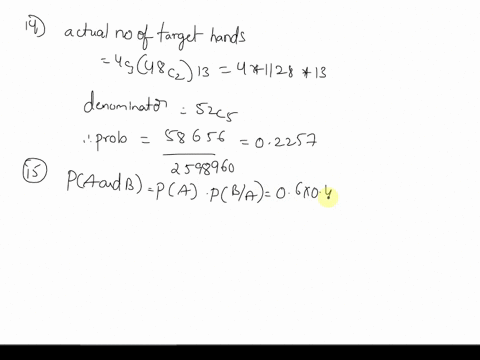 14) actual no of target hands
= 4C3 (48C2) 13 = 4*1128*13
denominator = 52C5
∴ prob = 58656 / 2598960 = 0.2257
15) P(A and B) = P(A) . P(B/A) = 0.6x0.4